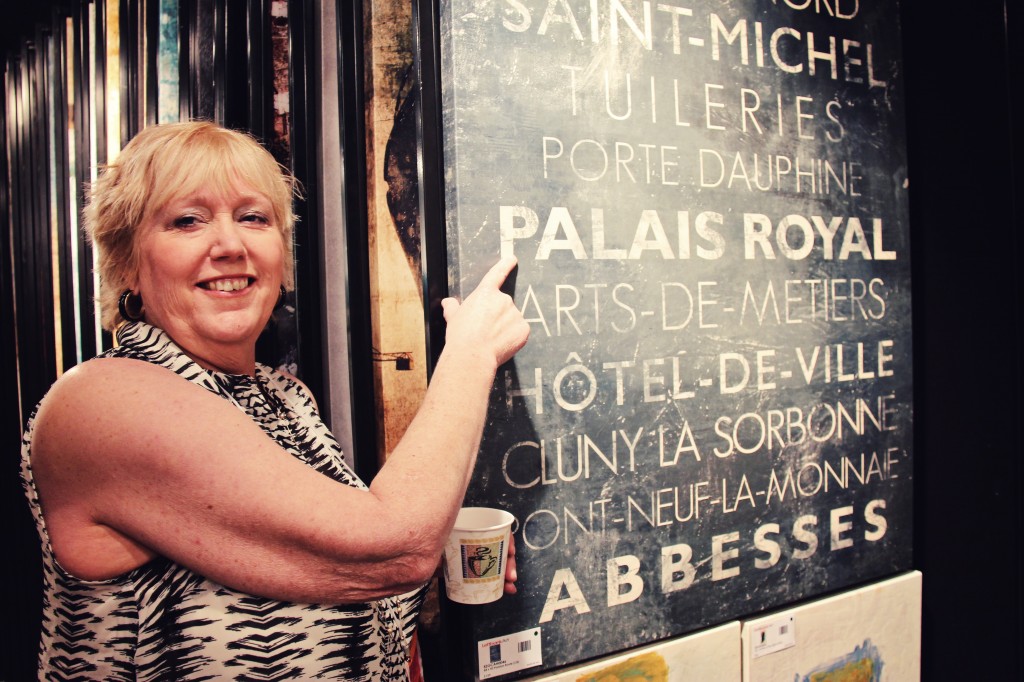 NORD
SAINT-MICHEL
TUILERIES
PORTE DAUPHINE
PALAIS ROYAL
ARTS-DE-METIERS
HÔTEL-DE-VILLE
CLUNY LA SORBONNE
PONT-NEUF-LA-MONNAIE
ABBESSES